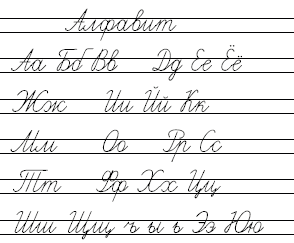 Алфавит
Аа Бб Вв Дд Ее Ёё
Жж Ии Йй Кк
Мм Оо Рр Сс
Тт Фф Хх Цц
Шш Щщ ъ ы ь Ээ Юю